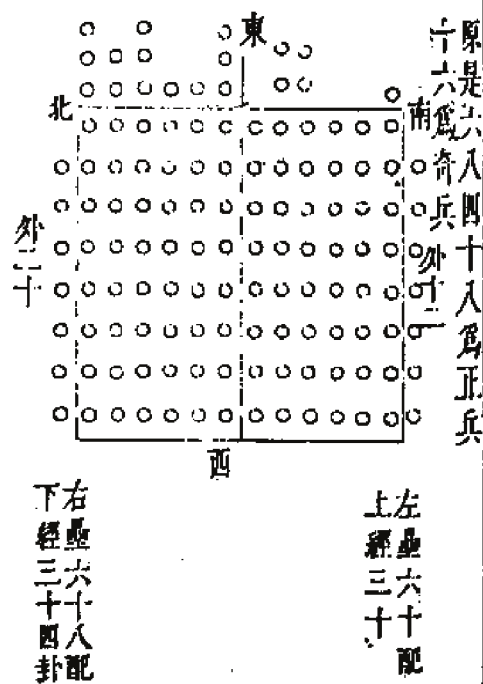 原是六八四十八爲正兵
十六爲奇兵
東
南
北
外十二
外二十
西
左壘六十配
上經三十
右壘六十八配
下經三十四卦